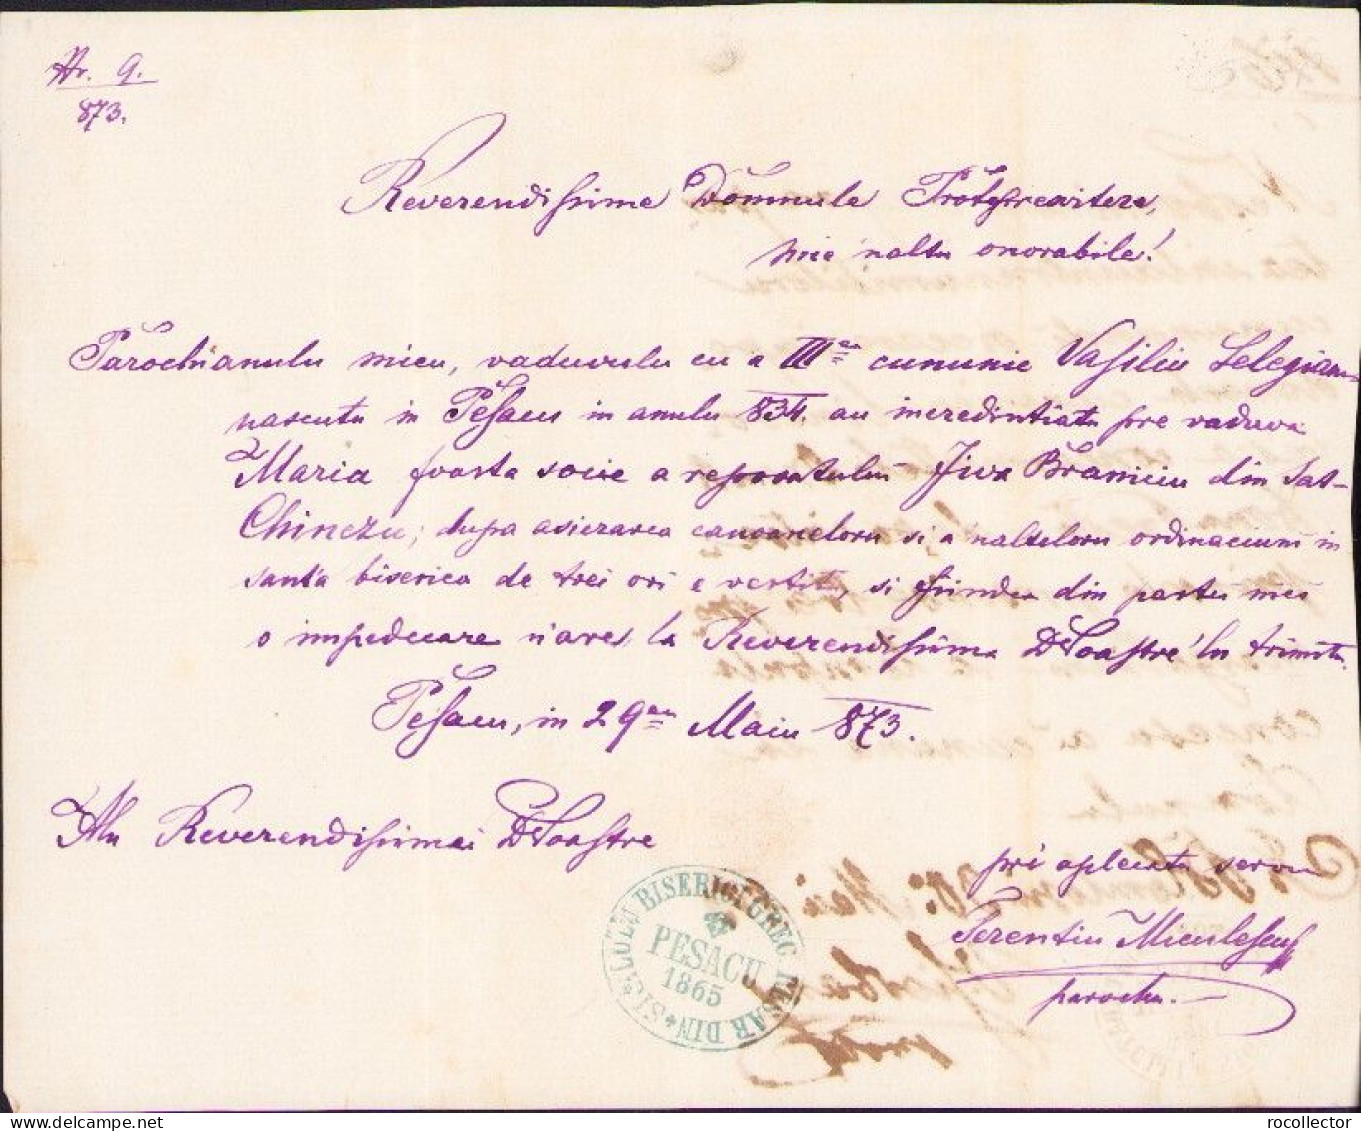 Nr. 9.
873.
Reverendissime Domnule Protopresvitere,
mie 'naltu onorabile!
Parochianulu mieu, vaduvulu cu a IIIa cununie Vasiliu Selegianu
nascutu in Pésacu in anulu 834. au incredintiatu pre vaduva
Maria foasta socie a reposatului Jiva Braniciu din Sat-
Chinezu; dupa asierarea canoaneloru si a nalteloru ordinaciuni in
santa biserica de trei ori e vestitu, si fiindca din partea mea
o impedecare n'ares, la Reverendissima DVoastre 'lu trimitu.
Pésacu, in 29an Maiu 873.
Alu Reverendissimei DVoastre
pré aplecatu servu
Terentiu Miculescu
parochu.
SIGILULU BISERICI GREC RESAR DIN
PESACU
1865
rocollector